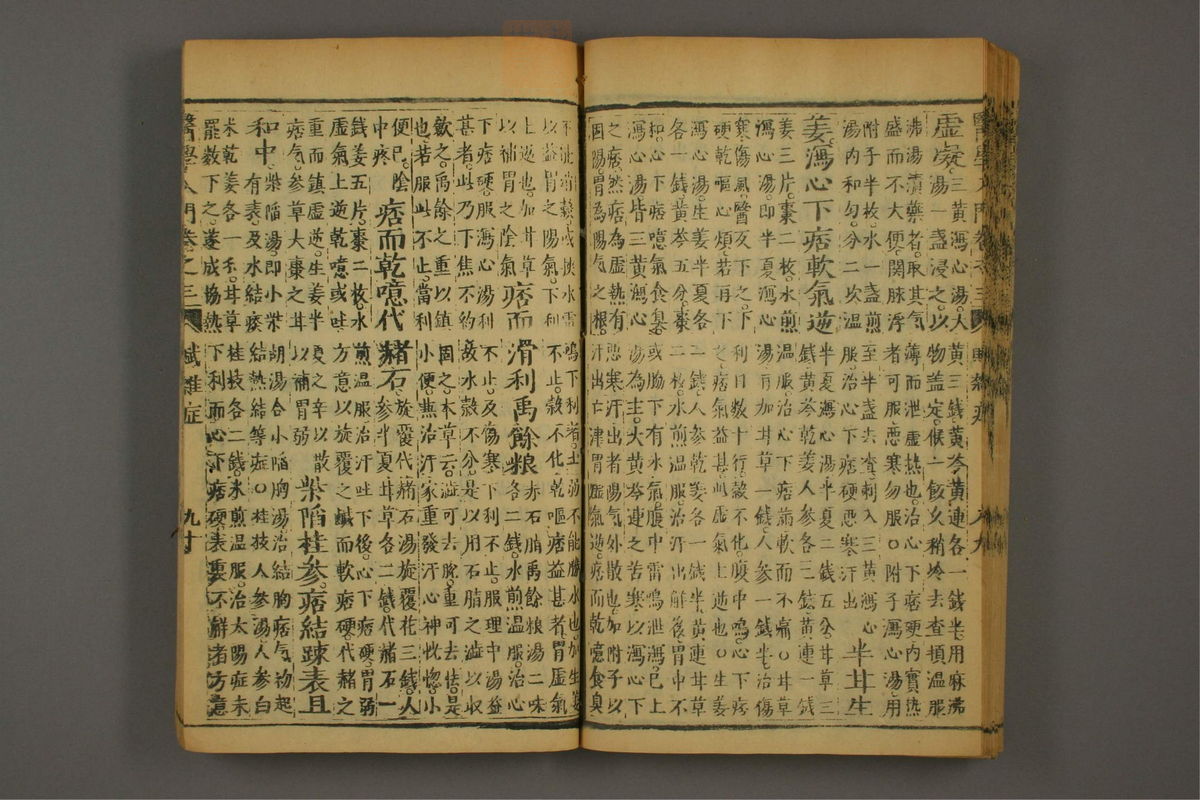 虛凝三黃瀉心湯大黃三錢黃芩黃連各一錢半用麻沸
湯一盞浸之以物蓋定候一飯久稍冷去查頓溫服
沸湯漬藥者取其氣薄而泄虛熱也治心下痞硬內實熱
盛而不大便關脉浮者可服惡寒勿服○附子瀉心湯用
附子半枚水一盞煎至半盞去查刺入三黃瀉心
湯內和勻分二次溫服治心下痞硬惡寒汗出
半甘生
姜瀉心下痞軟氣逆
半夏瀉心湯半夏二錢五分甘草三
錢黃芩乾姜人參各三錢黃連一錢
姜三片棗二枚水煎溫服治心下痞滿軟而不痛○甘草
瀉心湯即半夏瀉心湯方加甘草一錢人參一錢半治傷
寒傷風醫反下之下利日數十行穀不化腹中鳴心下痞
硬乾嘔心煩若再下之痞氣益甚此虛氣上逆也○生姜
瀉心湯生姜半夏各二錢人參乾姜各一錢半黃連甘草
各一錢黃芩五分棗二枚水煎溫服治汗出解後胃中不
和心下痞噫氣食臭或脇下有水氣腹中雷鳴泄瀉已上
瀉心湯皆三黃瀉心湯為主大黃芩連之苦寒以瀉心下
之痞然痞為虛熱有惡寒汗出者陽氣外散也加附子以
固陽胃為陽氣之根汗出亡津胃虛氣逆痞而乾噫食臭
不能消穀或挾水雷鳴下利者土弱不能勝水也加生姜
以益胃之陽氣下利不止穀不化乾嘔痞益甚者胃虛氣
上逆也加甘草
以補胃之陰氣
痞而滑利禹餘粮
赤石脂禹餘粮湯二味
各二錢水煎溫服治心
下痞硬服瀉心湯利不止及傷寒下利不止服理中湯益
甚者此乃下焦不約故水穀不分是以用石脂之澁以收
歛之禹餘之重以鎮固之本草云澁可去脫重可去怯是
也若服此不止當利小便無治汗家重發汗心神恍惚小
便已陰
中疼
痞而乾噫代赭石
旋覆代赭石湯旋覆花三錢人
參半夏甘草各二錢代赭石一
錢姜五片棗二枚水煎溫服治汗吐下後心下痞硬胃弱
虛氣上逆乾噫或吐方意以旋覆之鹹而軟痞硬代赭之
重而鎮虛逆生姜半夏之辛以散
痞氣參草大棗之甘以補胃弱
柴陷桂參痞結踈表且
和中
柴陷湯即小柴胡湯合小陷胸湯治結胸痞气初起
有表及水結痰結熱結等症○桂枝人參湯人參白
朮乾姜各一錢甘草桂枝各二錢水煎溫服治太陽症未
罷數下之遂成恊熱下利而心下痞硬表裏不解者方意
醫學入門卷之三 賦雜症 九十